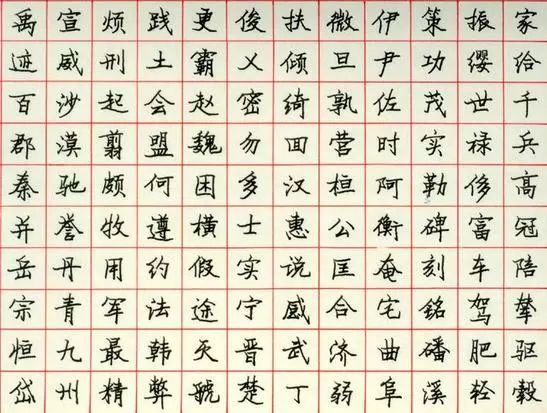 家给千兵高冠陪辇驱毂
振缨世禄侈富车驾肥轻
策功茂实勒碑刻铭磻溪
伊尹佐时阿衡奄宅曲阜
微旦孰营桓公匡合济弱
扶倾绮回汉惠说感武丁
俊乂密勿多士实宁晋楚
更霸赵魏困横假途灭虢
践土会盟何遵约法韩弊
烦刑起翦颇牧用军最精
宣威沙漠驰誉丹青九州
禹迹百郡秦并岳宗恒岱